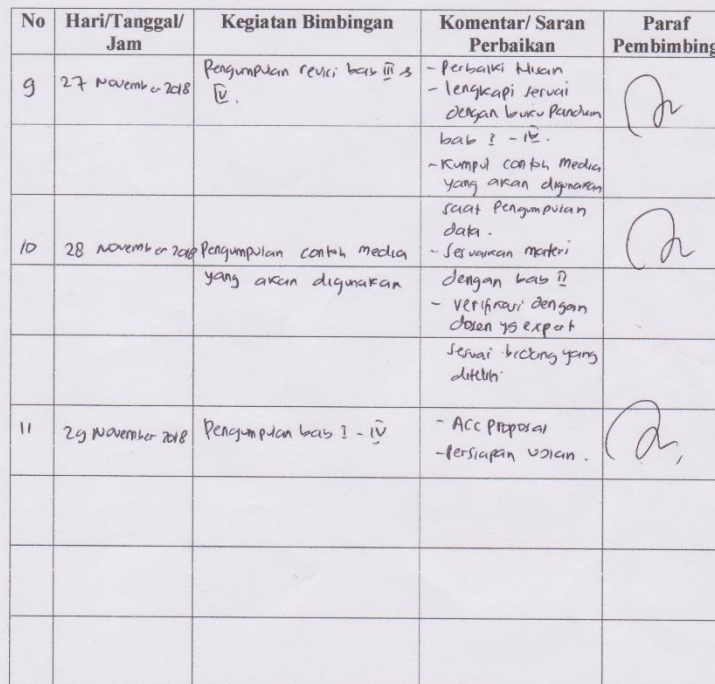 No Hari/Tanggal/ Jam Kegiatan Bimbingan Komentar/ Saran Perbaikan Paraf Pembimbing
9 27 November 2018 Pengumpulan revisi bab III & IV. - Perbaiki tulisan
- lengkapi sesuai dengan buku Panduan
bab I - IV.
- Kumpul contoh media yang akan digunakan
saat Pengumpulan data.
10 28 November 2018 Pengumpulan contoh media - Sesuaikan materi
yang akan digunakan dengan bab II
- verifikasi dengan dosen yg expert
sesuai bidang yang diteliti
11 29 November 2018 Pengumpulan bab I - IV - Acc Proposal
- Persiapan ujian.